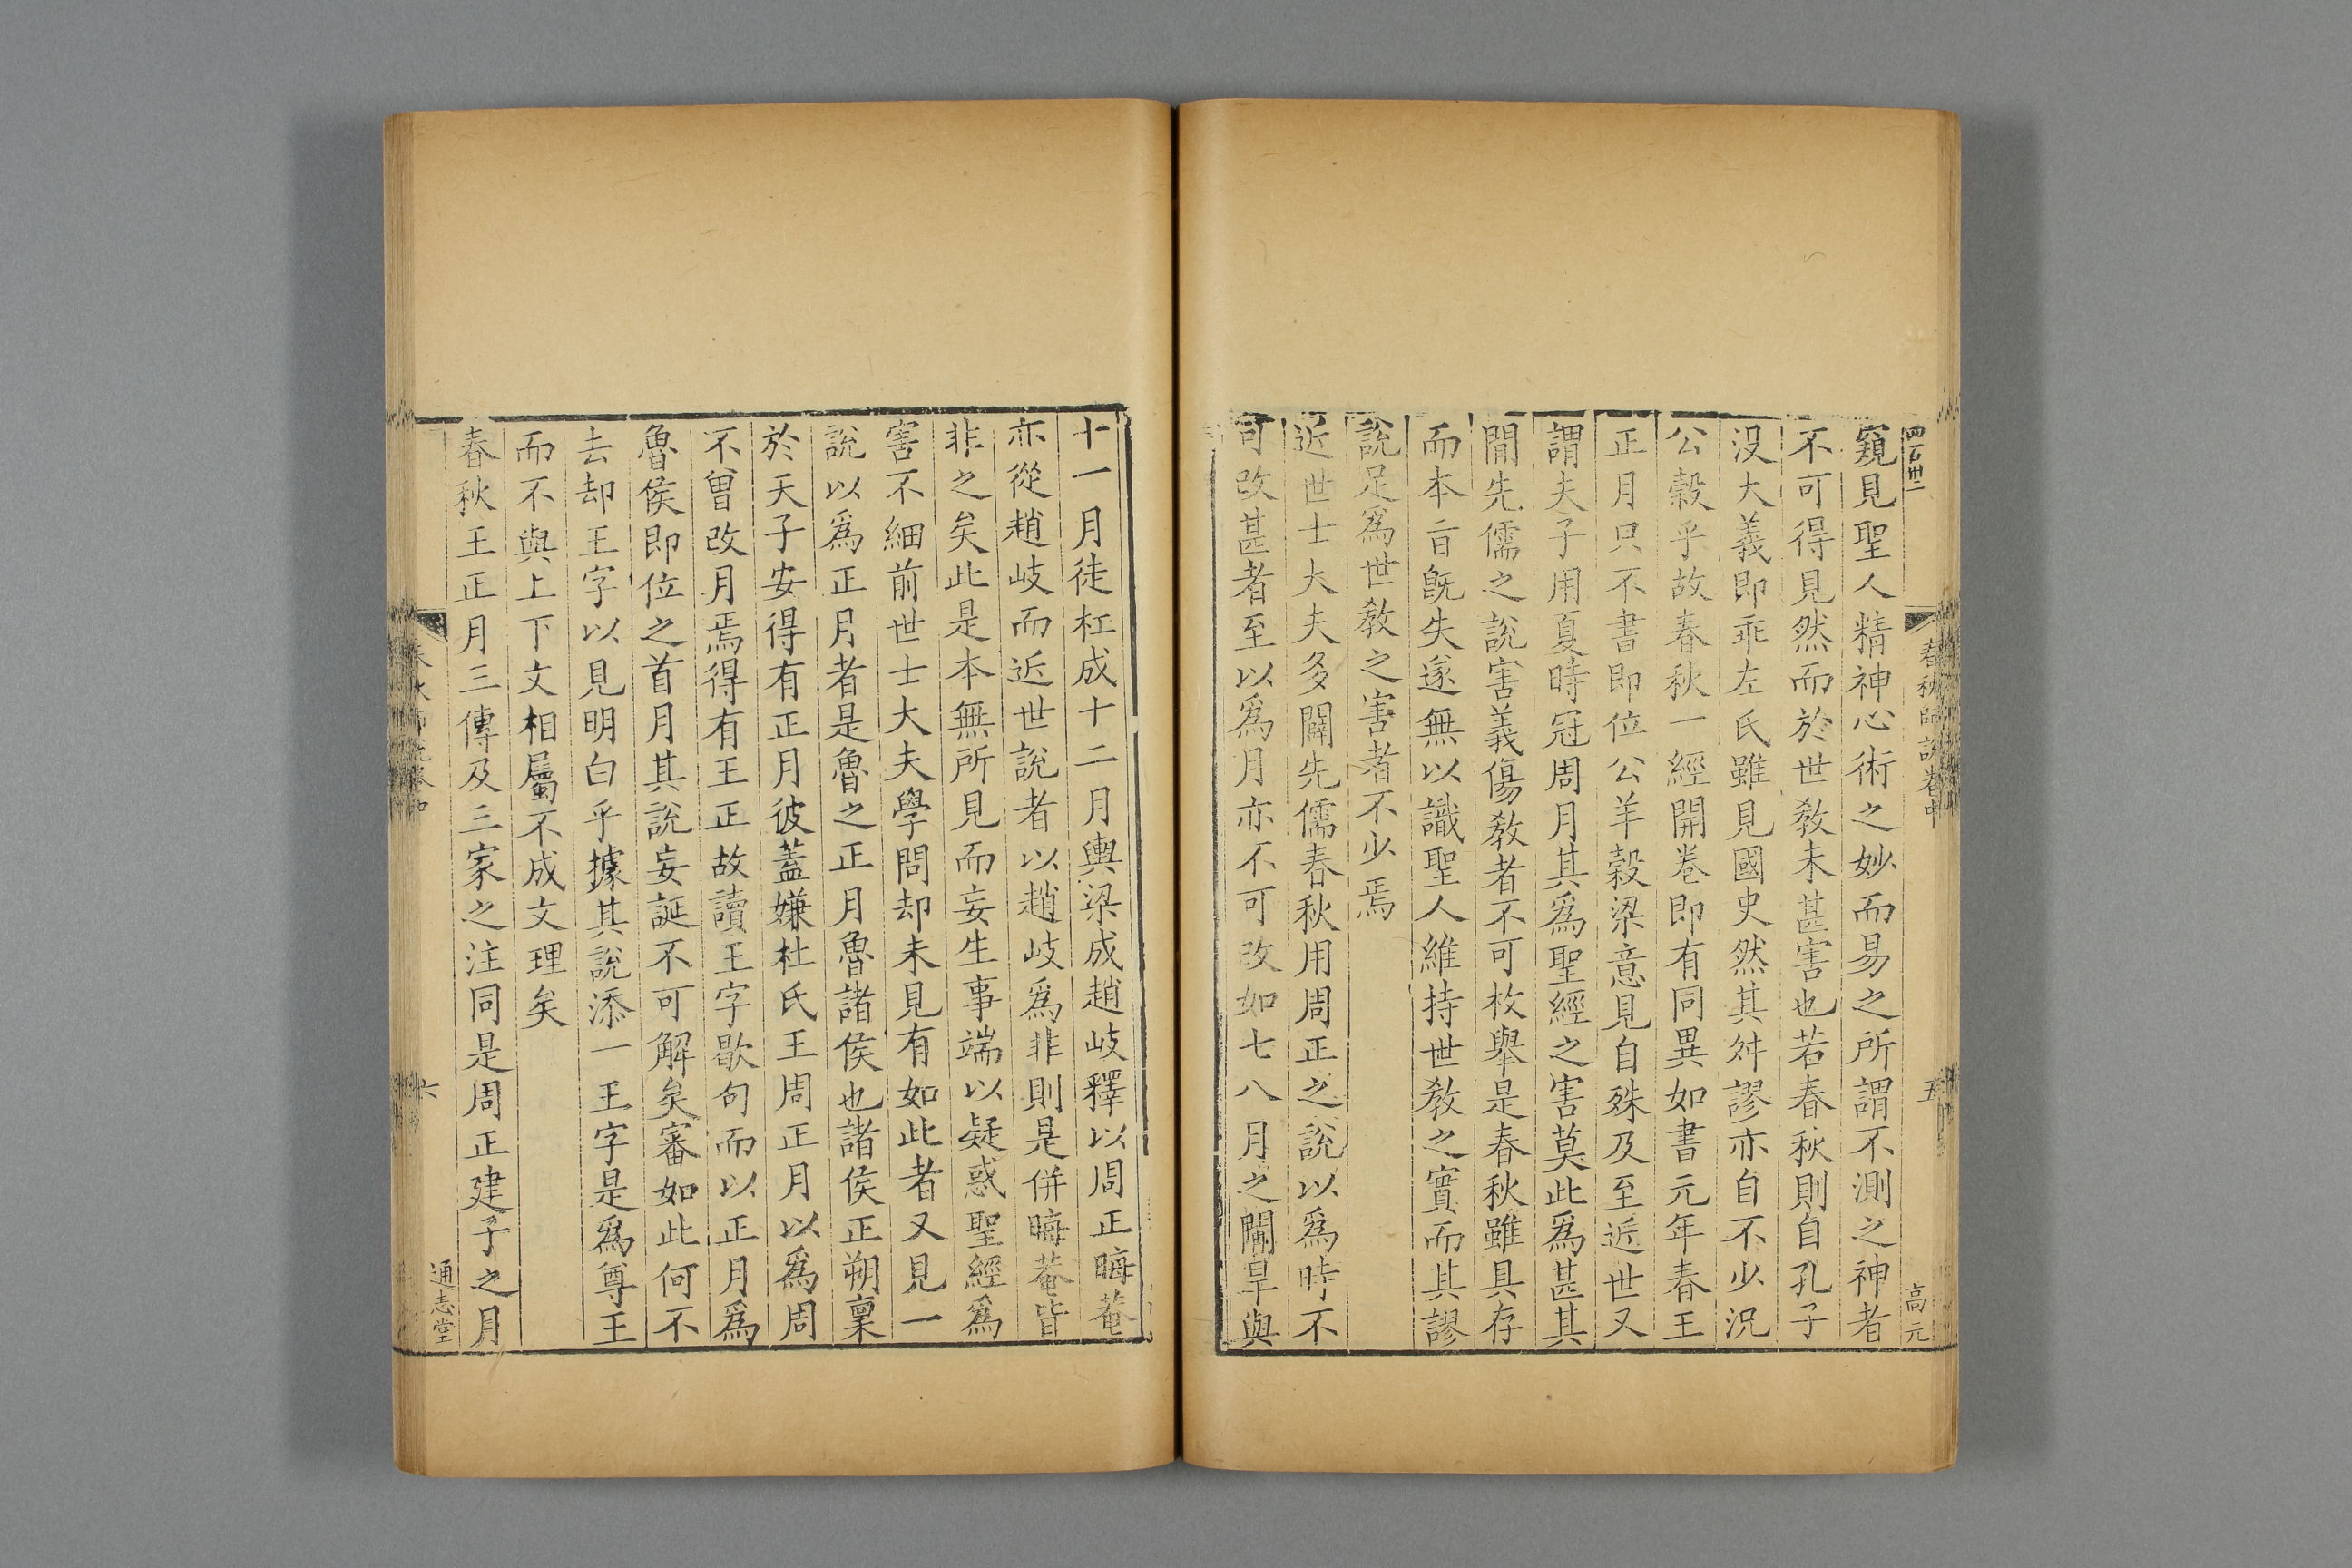 四百卅二
春秋師說卷中
五
高元
窺見聖人精神心術之妙而易之所謂不測之神者
不可得見然而於世敎未甚害也若春秋則自孔子
没大義即乖左氏雖見國史然其舛謬亦自不少況
公穀乎故春秋一經開卷即有同異如書元年春王
正月只不書即位公羊穀梁意見自殊及至近世又
謂夫子用夏時冠周月其爲聖經之害莫此爲甚其
閒先儒之說害義傷敎者不可枚舉是春秋雖具存
而本旨旣失遂無以識聖人維持世敎之實而其謬
說足爲世敎之害者不少焉
近世士大夫多闢先儒春秋用周正之說以爲時不
可改甚者至以爲月亦不可改如七八月之閒旱與
十一月徒杠成十二月輿梁成趙岐釋以周正晦菴
亦從趙岐而近世說者以趙岐爲非則是併晦菴皆
非之矣此是本無所見而妄生事端以疑惑聖經爲
害不細前世士大夫學問却未見有如此者又見一
說以爲正月者是魯之正月魯諸侯也諸侯正朔稟
於天子安得有正月彼蓋嫌杜氏王周正月以爲周
不曾改月焉得有王正故讀王字歇句而以正月爲
魯侯即位之首月其說妄誕不可解矣審如此何不
去却王字以見明白乎據其說添一王字是爲尊王
而不與上下文相屬不成文理矣
春秋王正月三傳及三家之注同是周正建子之月
六
通志堂